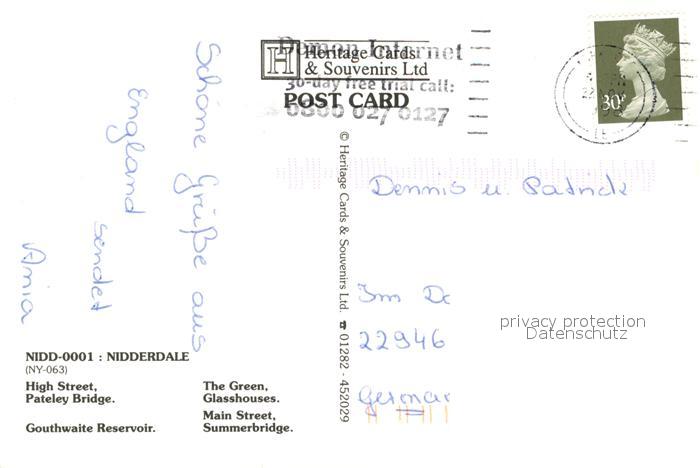 Demon Internet
H Heritage Cards
& Souvenirs Ltd
30-day free trial call:
POST CARD
0800 027 0127
30P
Schöne Grüße aus
England
sendet
© Heritage Cards & Souvenirs Ltd. ☎ 01282 - 452029
Dennis u. Patrick
Im
22946
German
privacy protection
Datenschutz
NIDD-0001 : NIDDERDALE
(NY-063)
High Street,
Pateley Bridge.
Gouthwaite Reservoir.
The Green,
Glasshouses.
Main Street,
Summerbridge.